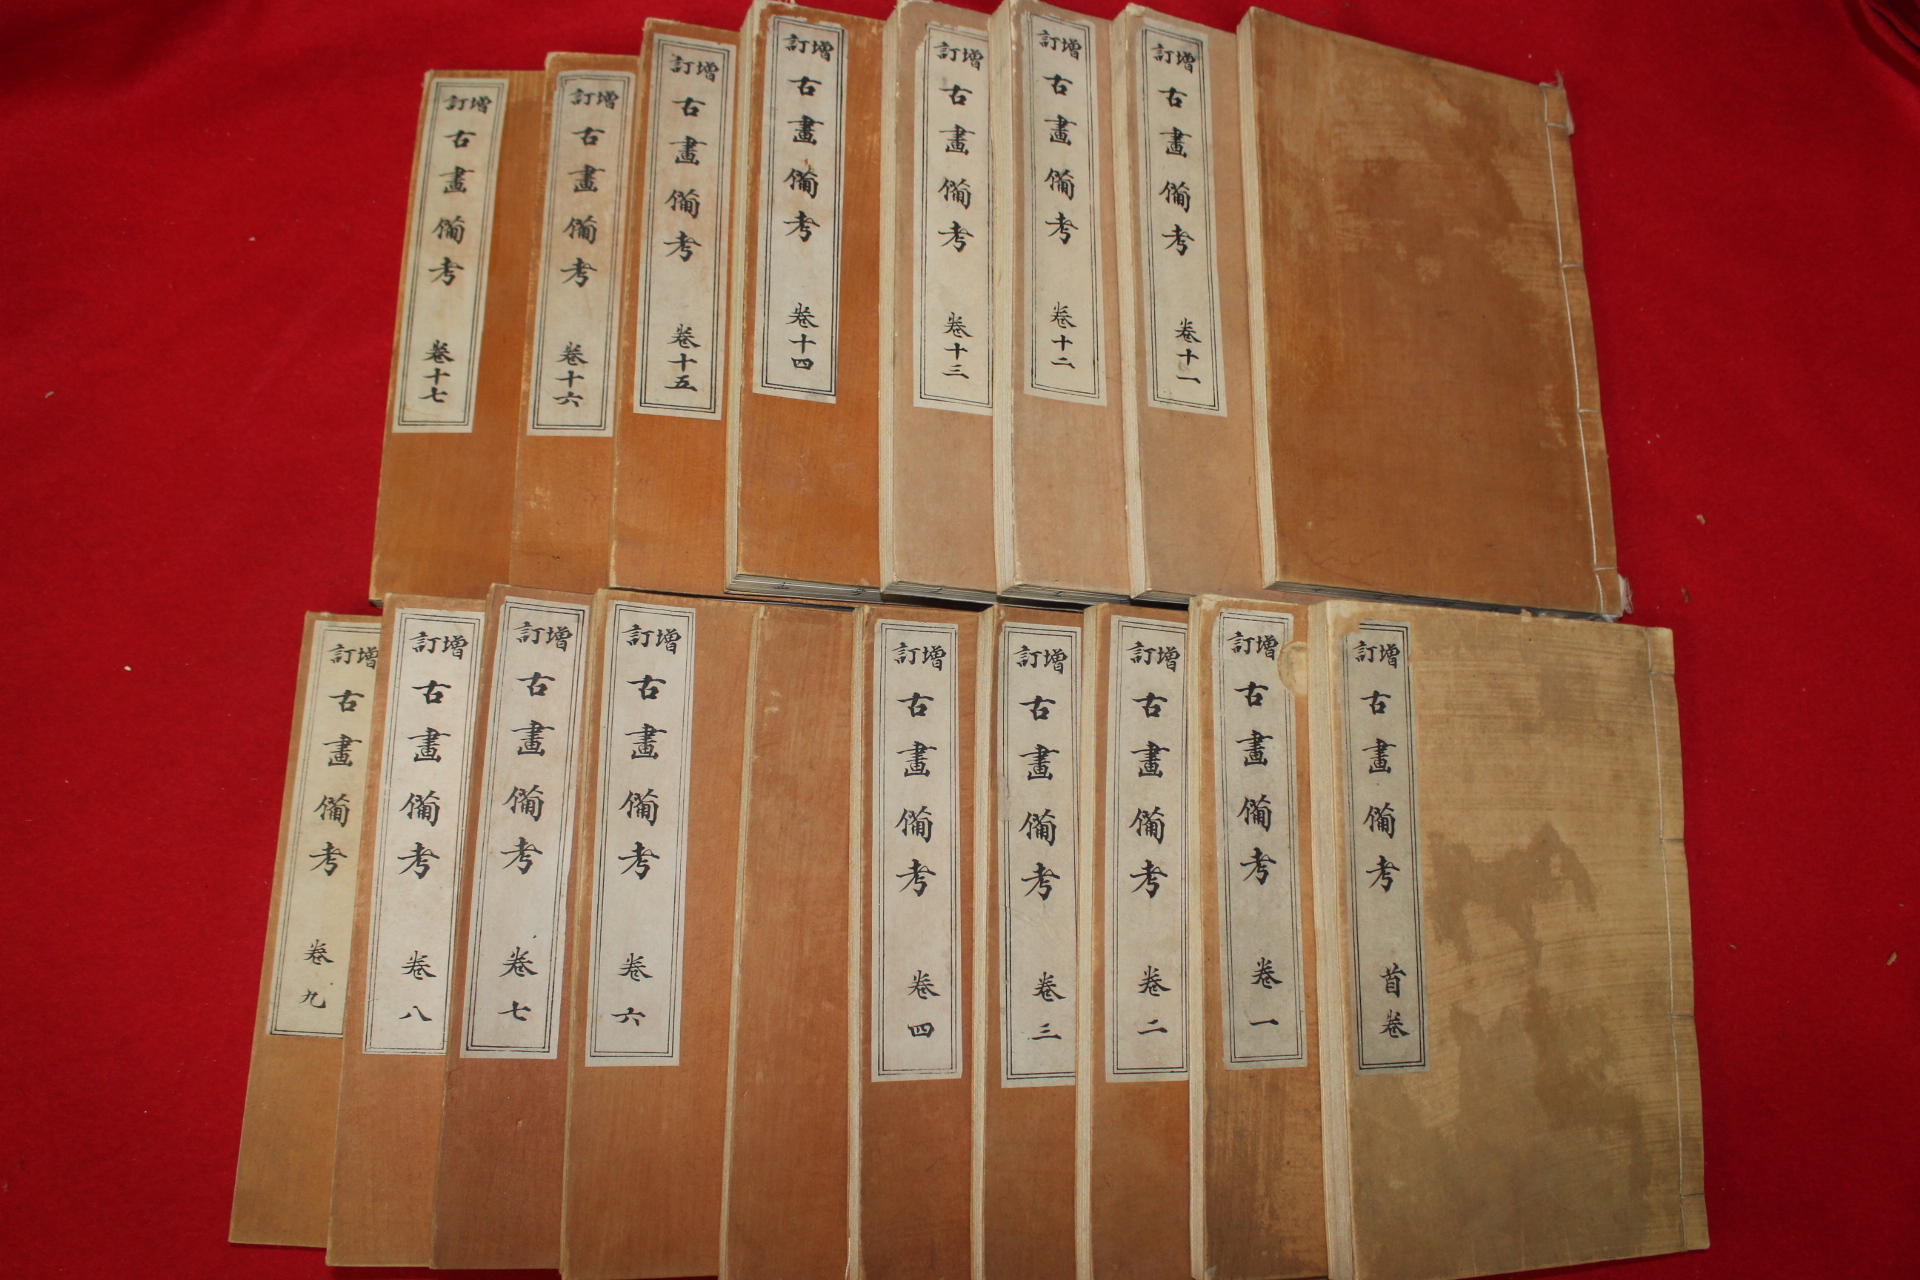 增訂 古畫備考 卷十一
增訂 古畫備考 卷十二
增訂 古畫備考 卷十三
增訂 古畫備考 卷十四
增訂 古畫備考 卷十五
增訂 古畫備考 卷十六
增訂 古畫備考 卷十七
增訂 古畫備考 首卷
增訂 古畫備考 卷一
增訂 古畫備考 卷二
增訂 古畫備考 卷三
增訂 古畫備考 卷四
增訂 古畫備考 卷六
增訂 古畫備考 卷七
增訂 古畫備考 卷八
增訂 古畫備考 卷九